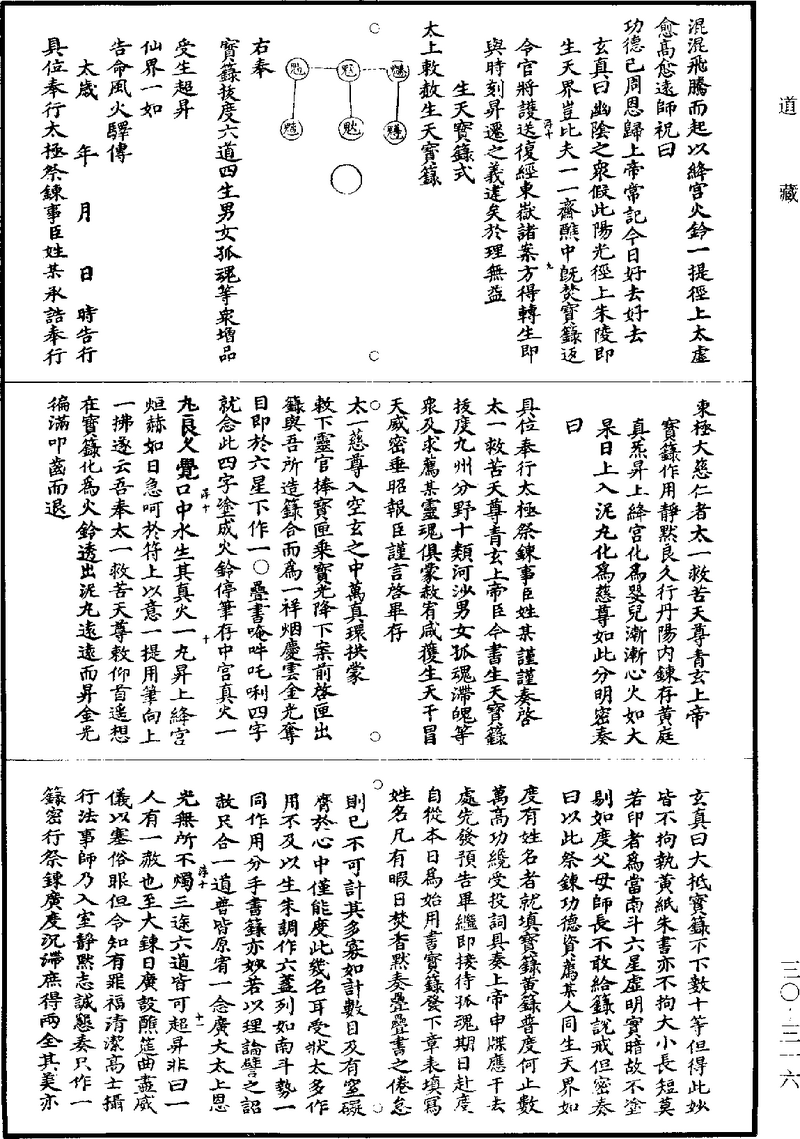 道藏
混混飛騰而起以絳宮火鈴一提徑上太虛
愈高愈遠師祝曰
功德已周恩歸上帝常記今日好去好去
玄真曰幽陰之衆假此陽光徑上朱陵即
生天界豈比夫一一齋醮中旣焚寶籙返
令官將護送復經東嶽諸案方得轉生即
與時刻昇遷之義違矣於理無益
生天寶籙式
太上敕赦生天寶籙
右奉
寶籙拔度六道四生男女孤魂等衆增品
受生超昇
仙界一如
告命風火驛傳
太歲 年 月 日 時告行
具位奉行太極祭鍊事臣姓某承誥奉行
東極大慈仁者太一救苦天尊青玄上帝
寶籙作用靜默良久行丹陽內鍊存黃庭
真炁昇上絳宮化為嬰兒漸漸心火如大
杲日上入泥丸化為慈尊如此分明密奏
曰
具位奉行太極祭鍊事臣姓某謹謹奏啓
太一救苦天尊青玄上帝臣今書生天寶籙
拔度九州分野十類河沙男女孤魂滯魄等
衆及求薦某靈魂俱蒙赦宥咸獲生天干冒
天威密垂昭報臣謹言啓畢存
太一慈尊入空玄之中萬真環拱蒙
敕下靈官捧寶匣乘寶光降下案前啓匣出
籙與吾所造籙合而為一祥烟慶雲金光奪
目即於六星下作一〇疊書唵吽吒唎四字
就念此四字塗成火鈴停筆存中宮真火一
九良久覺口中水生其真火一九昇上絳宮
烜赫如日急呵於符上以意一提用筆向上
一拂遂云吾奉太一救苦天尊敕仰首遥想
在寶籙化為火鈴透出泥丸遠遠而昇金光
徧滿叩齒而退
玄真曰大抵寶籙不下數十等但得此妙
皆不拘執黃紙朱書亦不拘大小長短莫
若印者為當南斗六星虛明實暗故不塗
剔如度父母師長不敢給籙說戒但密奏
曰以此祭鍊功德資薦某人同生天界如
度有姓名者就填寶籙黃籙普度何止數
萬高功纔受投詞具奏上帝申牒應干去
處先發預告畢繼即接待孤魂期日赴度
自從本日為始用書寶籙發下章表填寫
姓名凡有暇日焚香默奏疊疊書之倦怠
則已不可計其多寡如計數目及有窒礙
膺於心中僅能度此幾名耳受狀太多作
用不及以生朱調作六盞列如南斗勢一
同作用分手書籙亦妙若以理論譬之詔
赦只合一道普皆原宥一念廣大太上恩
光無所不燭三途六道皆可超昇非曰一
人有一赦也至大鍊日廣設醮筵曲盡威
儀以塞俗眼但令知有罪福清潔高士攝
行法事師乃入室靜默志誠懇奏只作一
籙密行祭鍊廣度沉滯庶得兩全其美亦
三〇·三一六